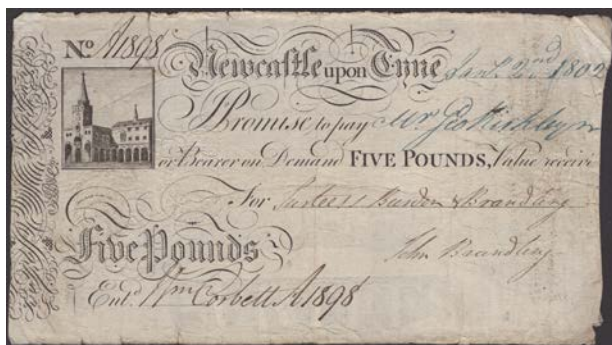 No. A1898
Newcastle upon Tyne Jany. 2nd 1802
I Promise to pay Mr. Geo
or Bearer on Demand FIVE POUNDS, Value receiv
For Surtees Burdon & Brandling
John Brandling
Five Pounds
Entd. Wm Corbett A1898